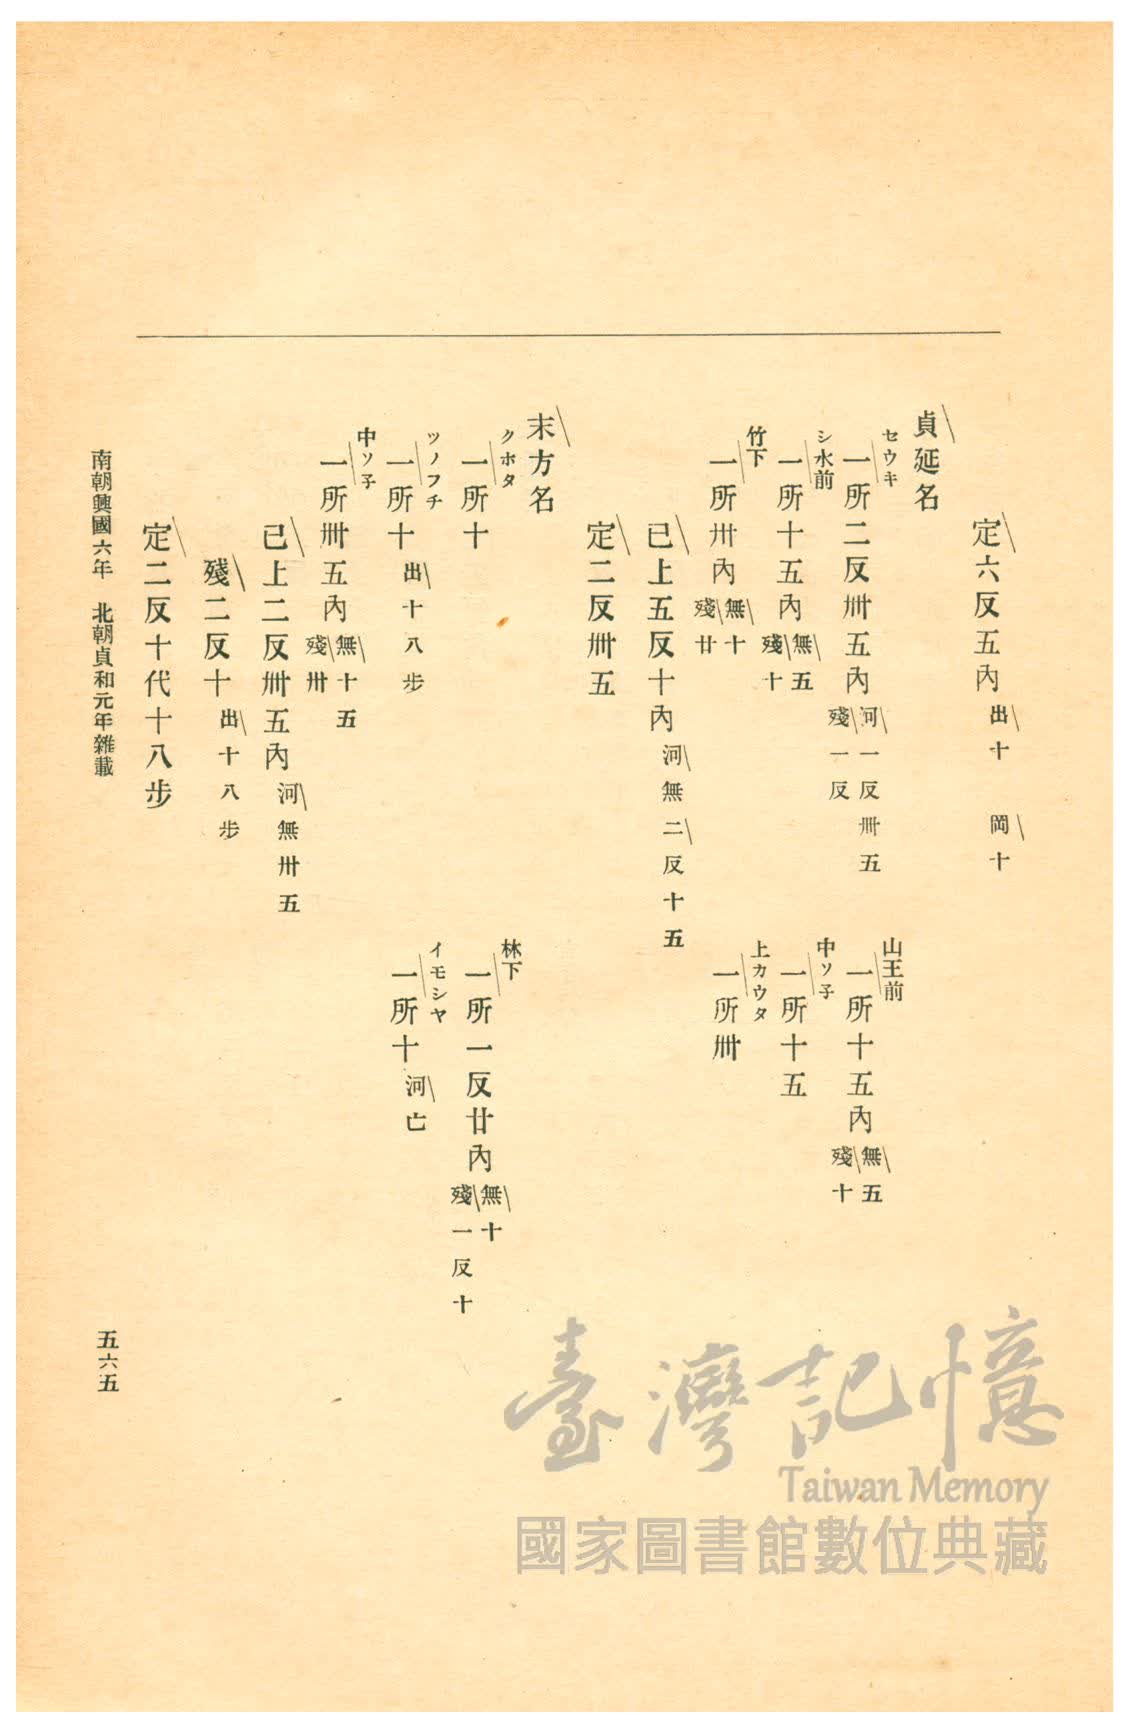 定六反五內 出十 岡十
貞延名
セウキ
一所二反卅五內 河一反卌五 殘一反
山王前
一所十五內 無五 殘十
シ水前
一所十五內 無五 殘十
中ソ子
一所十五
竹下
一所卅內 無十 殘廿
上カウタ
一所卌
已上五反十內 河無二反十五
定二反卌五
末方名
クホタ
一所十
林下
一所一反廿內 無十 殘一反十
ツノフチ
一所十 出十八步
イモシヤ
一所十 河亡
中ソ子
一所卌五內 無十五 殘卅
已上二反卌五內 河無卅五
殘二反十 出十八步
定二反十代十八步
南朝興國六年 北朝貞和元年雜載
五六五
臺灣記憶
Taiwan Memory
國家圖書館數位典藏